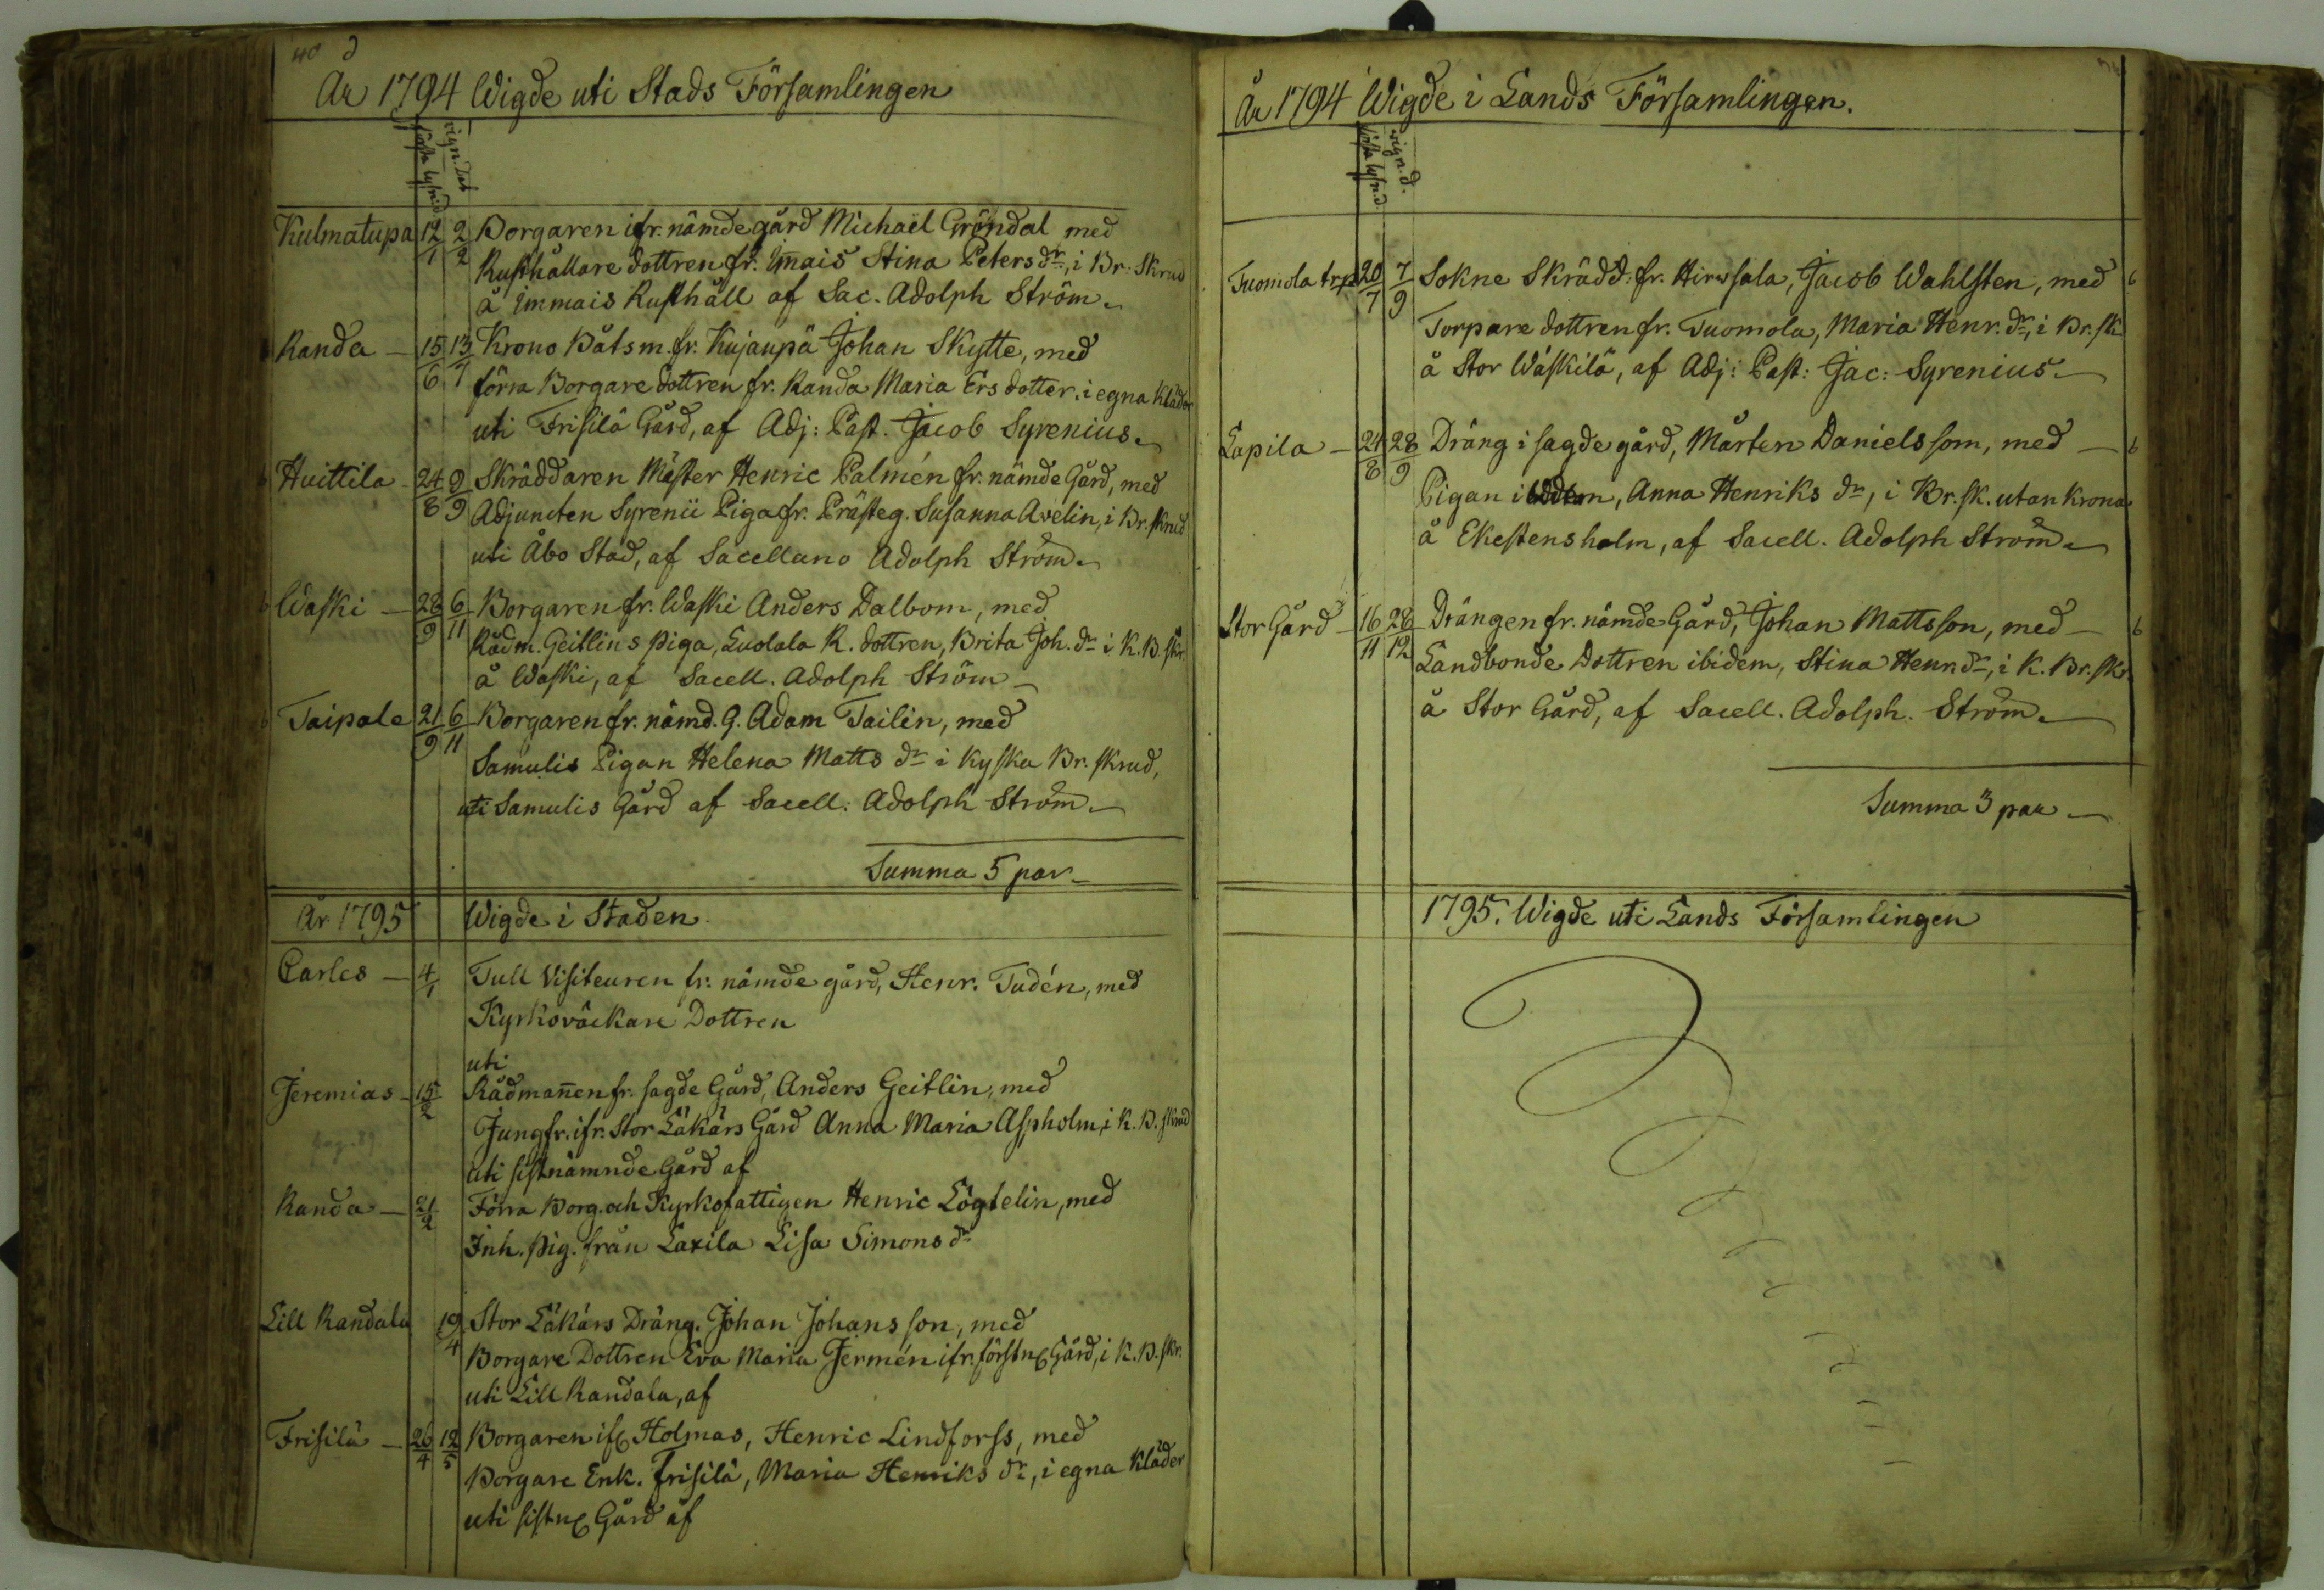 År 1794 Wigde uti Stads Församlingen
första lysn.d
vign. Dat
Kulmatupa 12/1 2/2 Borgaren ifr. nämde gård Michaël Gröndal med
Rusthållare dottren fr. Immais Stina Peters dr, i Br: Skrud
å Immais Rusthåll af Sac. Adolph Ström.
Randa - 15/6 13/7 Krono Båtsm. fr. Kujanpä Johan Skytte, med
förra Borgare dottren fr. Randa Maria Ers dotter, i egna Kläder
uti Frisilä Gård, af Adj: Past. Jacob Syrenius.
Huittila - 24/8 9/9 Skräddaren Mäster Henric Palmén fr. nämde Gård, med
Adjuncten Syrenii Piga fr. Prästeg. Susanna Avelin, i Br. skrud
uti Åbo Stad, af Sacellano Adolph Ström.
Waski - 28/9 6/11 Borgaren fr. Waski Anders Dalbom, med
Rådm. Geitlins piga, Luolala R. dottren, Brita Joh. dr i K. B. skr.
å Waski, af Sacell. Adolph Ström -
Taipale 21/9 6/11 Borgaren fr. nämd. G. Adam Tailin, med
Samulis Pigan Helena Matts dr i Kyska Br. skrud,
uti Samulis Gård af Sacell: Adolph Ström.
Summa 5 par -
År 1795 Wigde i Staden.
Carles - 4/1 Tull Visiteuren fr. nämde gård, Henr. Tudén, med
Kyrkoväckare Dottren
uti
Jeremias - 15/2 Rådmannen fr. sagde Gård, Anders Geitlin, med
Jungfr. ifr. Stor Läkärs Gård Anna Maria Aspholm, i K. B. skrud
uti sistnämnde Gård af
Randa - 21/2 Förra Borg. och Kyrkofattigen Henric Lögtelin, med
Inh. pig. från Laxila Lisa Simons dr
Lill Randala 19/4 Stor Läkärs Dräng. Johan Johansson, med
Borgare Dottren Eva Maria Jermén ifr. förstn. Gård, i K. B. skr.
uti Lill Randala, af
Frisilä - 26/4 12/5 Borgaren ifr. Holmas, Henric Lindforss, med
Borgare Enk. Frisilä, Maria Henriks dr, i egna Kläder
uti sistn. Gård af
År 1794 Wigde i Lands Församlingen.
första lysn.d
vign. d.
Tuomola trp 20/7 7/9 Sokne Skrädd: fr. Hirwsala, Jacob Wahlsten, med
Torpare dottren fr. Tuomola, Maria Henr. dr, i Br. sk.
å Stor Wäskilä, af Adj: Past: Jac: Syrenius.
Lapila - 24/8 28/9 Dräng i sagde gård, Mårten Danielsson, med -
Pigan ibidem, Anna Henriks dr, i Br. sk. utan krona
å Ekestensholm, af Sacell. Adolph Ström.
Stor Gård - 16/11 28/12 Drängen fr. nämde Gård, Johan Mattsson, med -
Landbonde Dottren ibidem, Stina Henr. dr, i K. Br. skr.
å Stor Gård, af Sacell. Adolph. Ström.
Summa 3 par -
1795. Wigde uti Lands Församlingen